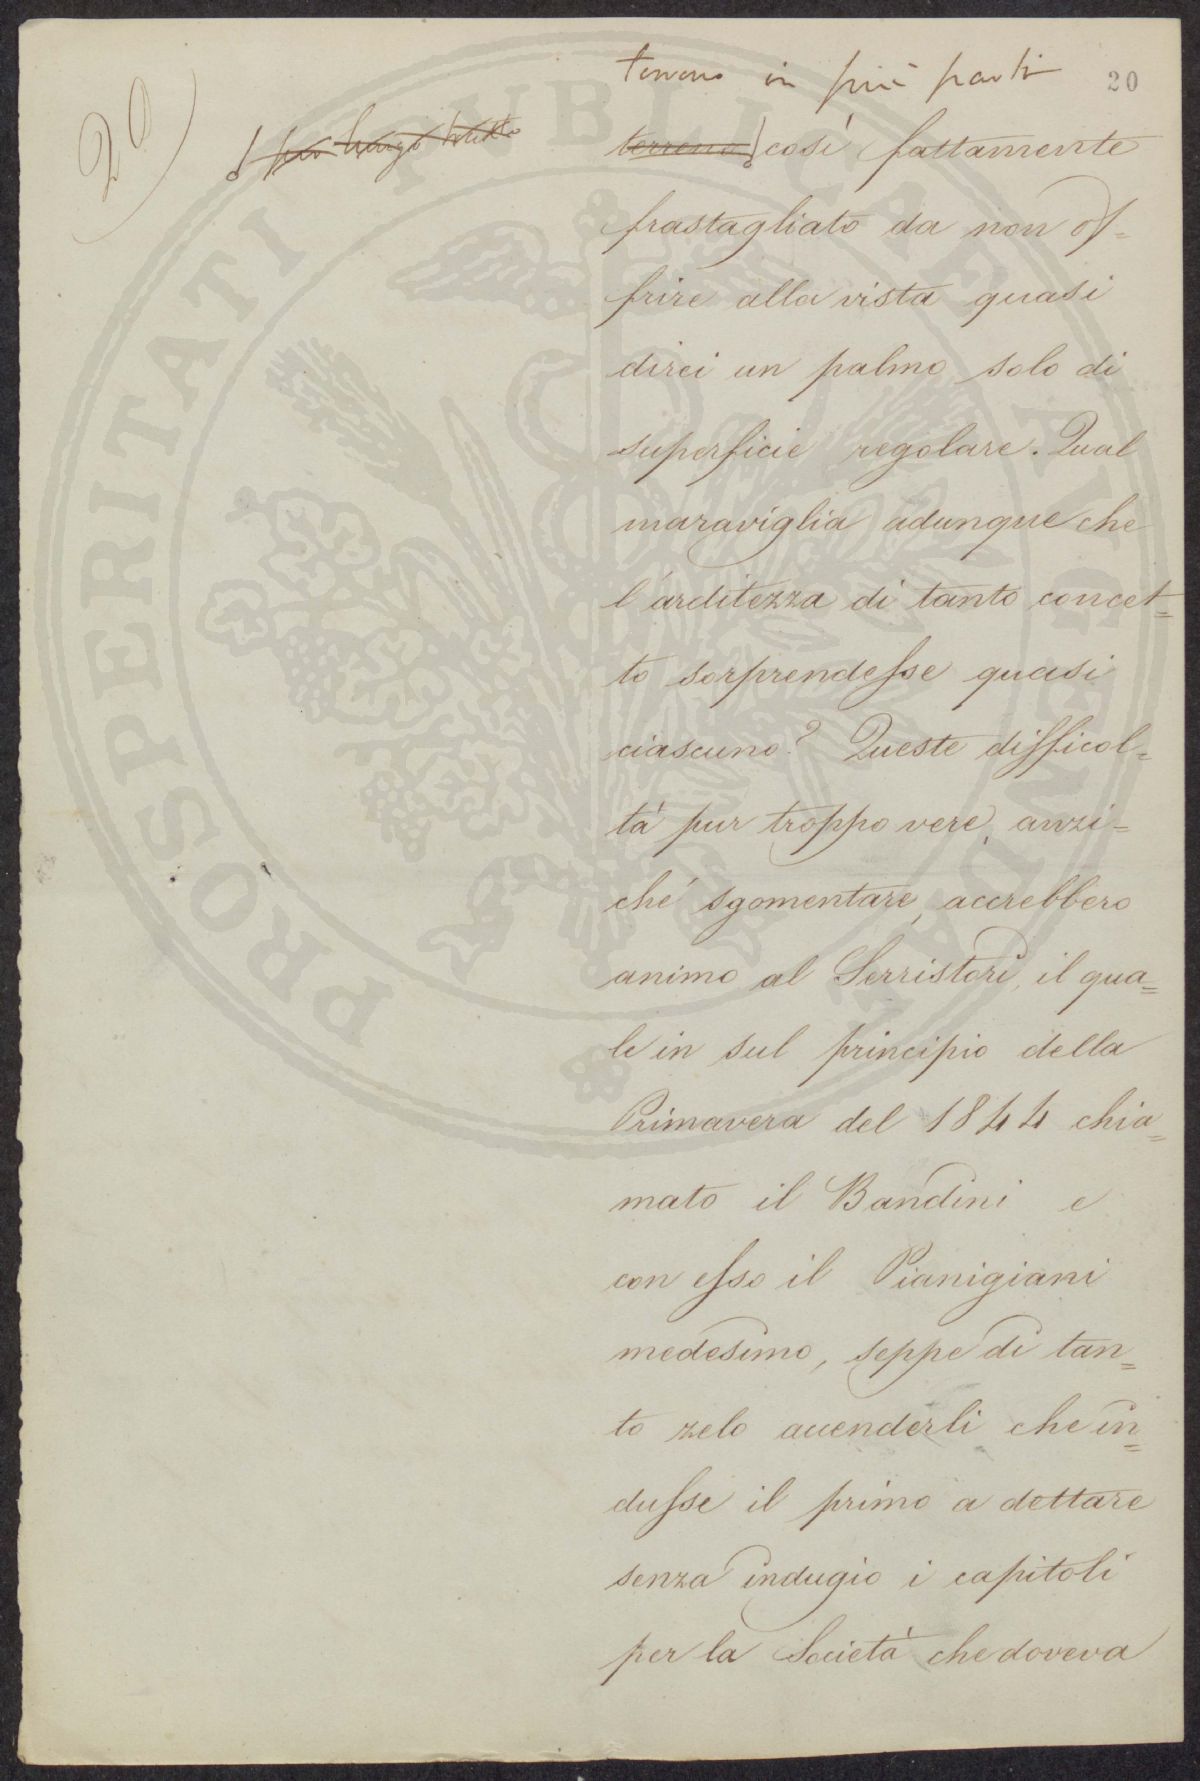 20)
20
terreno in più parti
per lungo tratto
terreno così fattamente
frastagliato da non of=
frire alla vista quasi
direi un palmo solo di
superficie regolare. Qual
maraviglia adunque che
l'arditezza di tanto concet=
to sorprendesse quasi
ciascuno? Queste difficol=
tà pur troppo vere, anzi=
ché sgomentare, accrebbero
animo al Serristori, il qua=
le in sul principio della
Primavera del 1844 chia=
mato il Bandini e
con esso il Pianigiani
medesimo, seppe di tan=
to zelo accenderli che in=
dusse il primo a dettare
senza indugio i capitoli
per la Società che doveva
PROSPERITATI PUBLICAE AUGENDAE